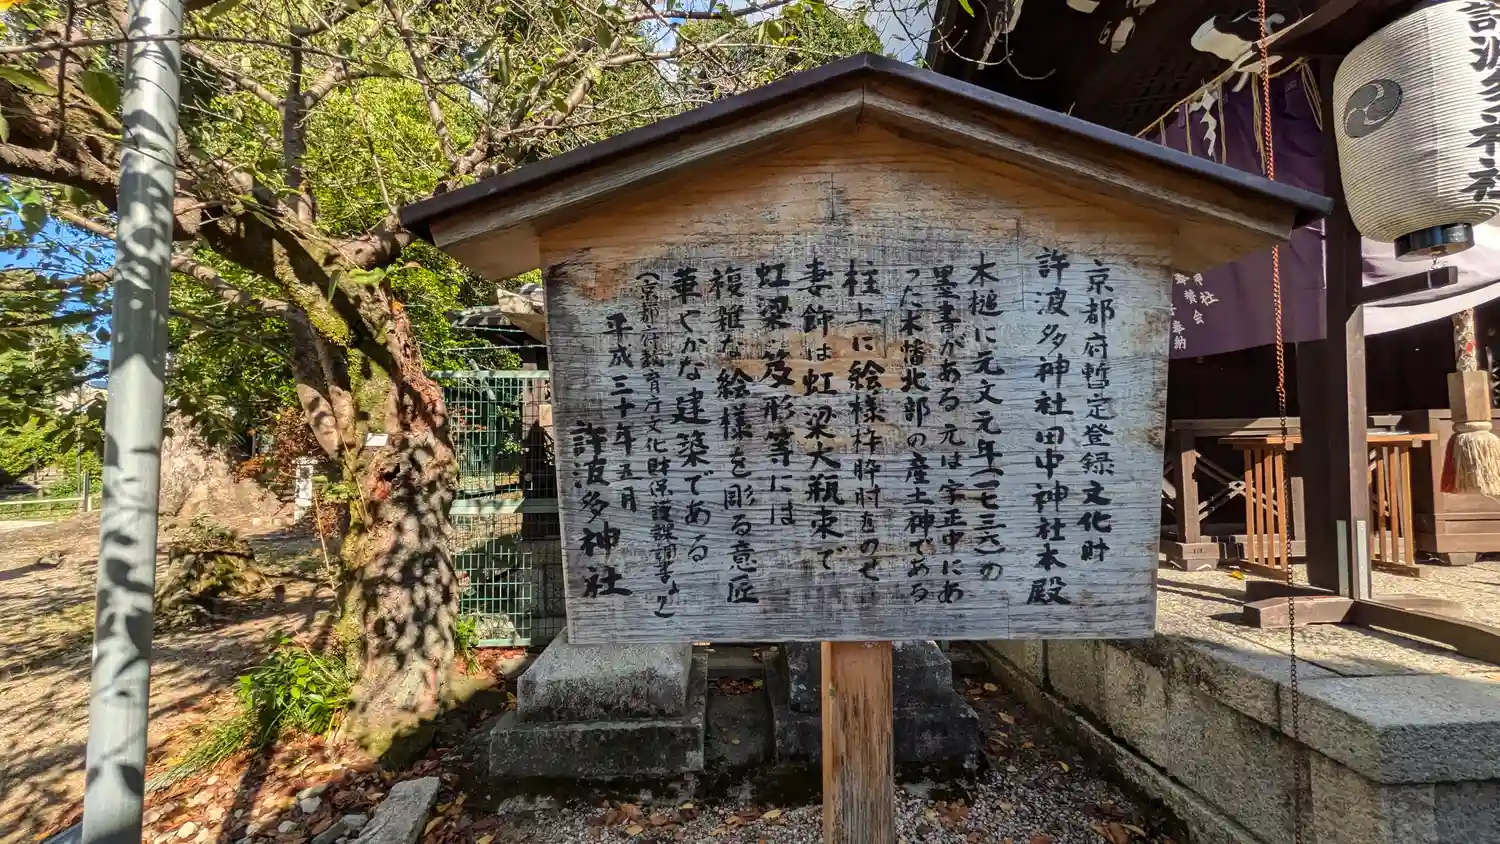 京都府暫定登録文化財
許波多神社田中神社本殿
木槌に元文元年(一七三六)の
墨書がある元は字正中にあ
った木幡北部の産土神である
柱上に絵様枠肘木のせ
妻飾は虹梁大瓶束で
虹梁笈形等には
複雑な絵様を彫る意匠
華やかな建築である
(京都府教育庁文化財保護課調書より)
平成三十年五月
許波多神社
許波多神社
奉納